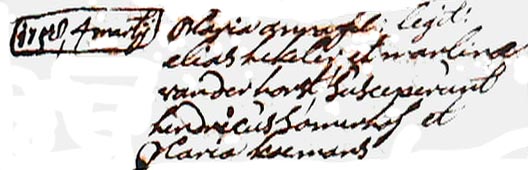 1758, 4 martij Maria anna fil: legit:
elias hekeler et martina
vander horst, Susceperunt
hendricus Somerhof et
Maria koemans